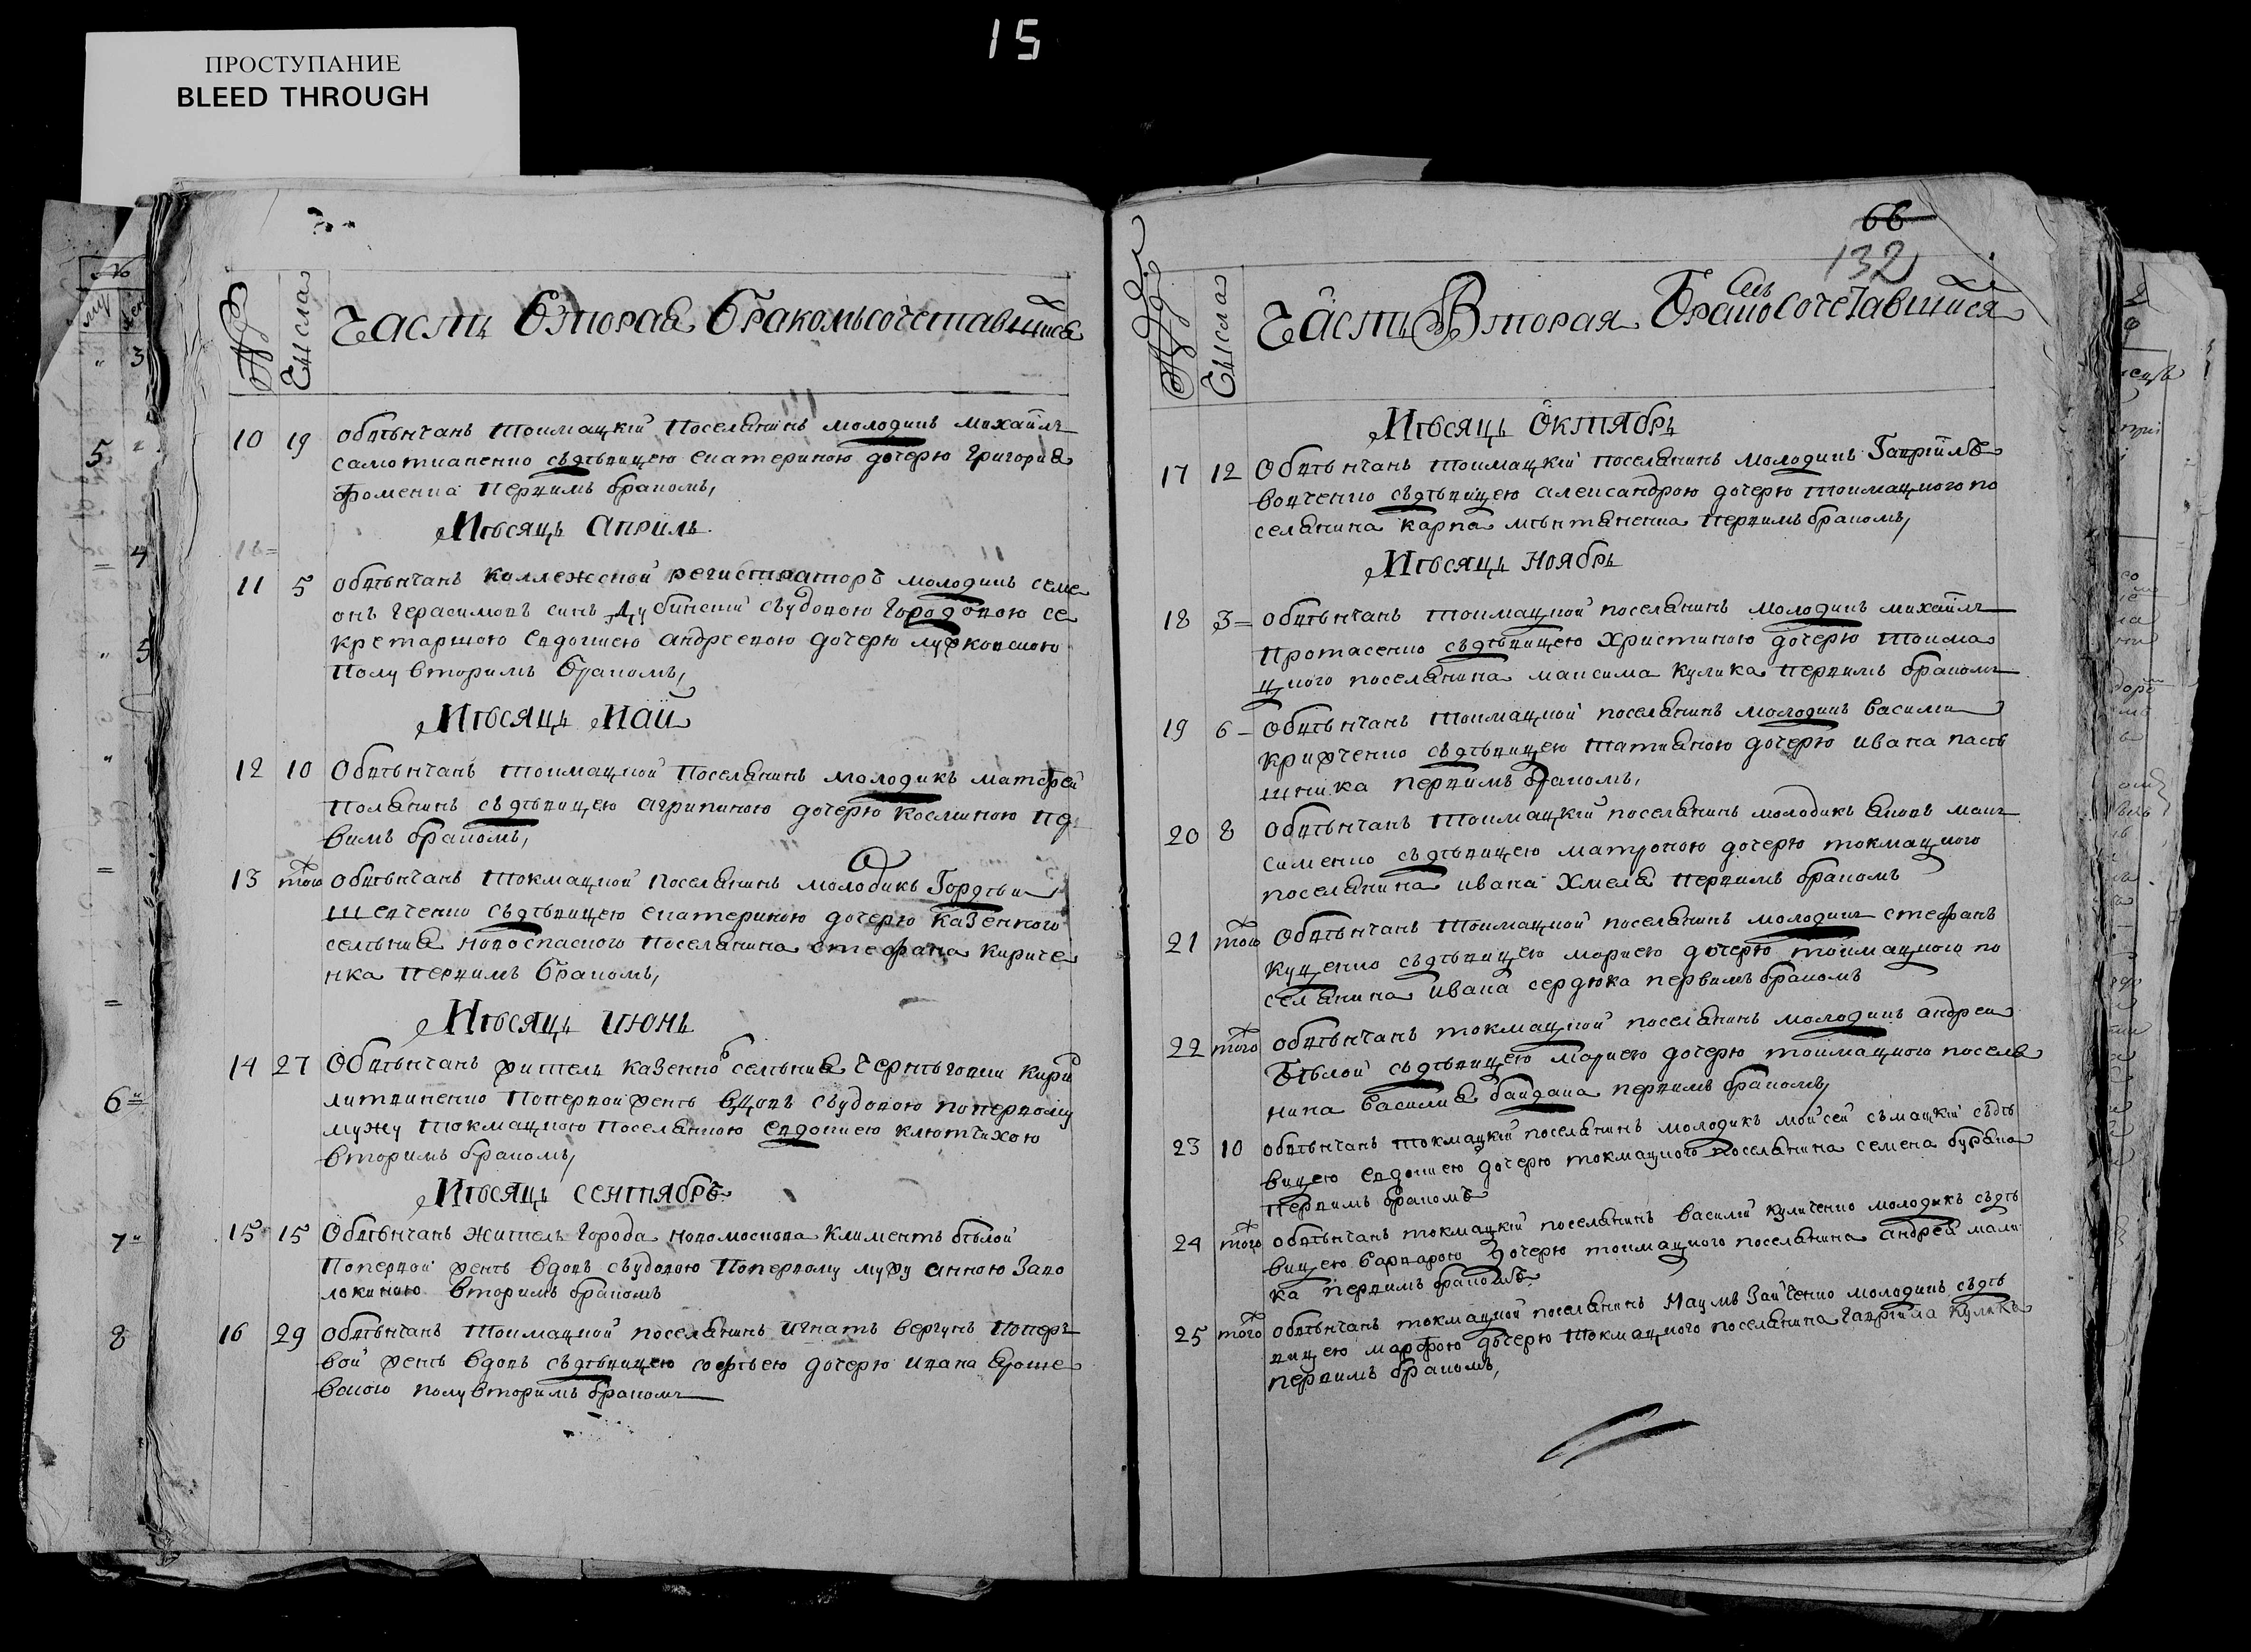 15
ПРОСТУПАНИЕ
BLEED THROUGH
Числа
Часть Вторая Бракомъсочетавшияся
10 19 Обвѣнчанъ токмацкій поселянинъ молодикъ михайлъ
самотканенко съдѣвицею екатериною дочерю григория
фоменка первимъ бракомъ,
Мѣсяць Априль
11 5 обвѣнчанъ коллежской регистраторъ молодикъ семе
онъ герасимовъ синъ Дубинский съудовою городовою се
кретаршою евдокиею андреевою дочерю
полу вторимъ бракомъ,
Мѣсяць Май
12 10 Обвѣнчанъ токмацкой поселянинъ молодикъ матфей
полянинъ съдѣвицею агрипиною дочерю косминою пер
вимъ бракомъ,
13 того Обвѣнчанъ токмацкой поселянинъ молодикъ Гордѣи
шевченко съдѣвицею екатериною дочерю казенного
селѣния новоспаского поселянина стефана кириче
нка первимъ бракомъ,
Мѣсяць июнь
14 27 Обвѣнчанъ житель казенно селѣния Чернѣговки кири
литвиненко поперъвой женѣ вдовъ съудовою поперъвому
мужу токмацкою поселянкою евдокиею клютчихою
вторимъ бракомъ,
Мѣсяць сентябрь
15 15 Обвѣнчанъ житель города новомосковска климентъ бѣлой
поперъвой женѣ вдовъ съудовою поперъвому мужу анною
вторимъ бракомъ
16 29 Обвѣнчанъ токмацкой поселянинъ игнатъ вергунъ поперъ
вой женѣ вдовъ съдѣвицею софѣею дочерю ивана яроше
вскою полу вторимъ бракомъ
66
132
Числа
Часть Вторая Бракосочетавшияся
Мѣсяць Октябрь
17 12 Обвѣнчанъ токмацкій поселянинъ молодикъ Гаврійлъ
вовченко съдѣвицею александрою дочерю токмацкого по
селянина карпа первимъ бракомъ,
Мѣсяць Ноябрь
18 3 обвѣнчанъ токмацкой поселянинъ молодикъ михайлъ
протасенко съдѣвицею христиною дочерю токма
цкого поселянина максима кулика первимъ бракомъ
19 6 Обвѣнчанъ токмацкой поселянинъ молодикъ василий
крижченко съдѣвицею татияною дочерю ивана пасѣ
шника первимъ бракомъ,
20 8 Обвѣнчанъ токмацкій поселянинъ молодикъ яковъ мак
сименко съдѣвицею матроною дочерю токмацкого
поселянина ивана хмеля первимъ бракомъ
21 того Обвѣнчанъ токмацкой поселянинъ молодикъ стефанъ
куценко съдѣвицею мариею дочерю токмацкого по
селянина ивана сердюка первимъ бракомъ
22 того обвѣнчанъ токмацкой поселянинъ молодикъ андреи
Бѣлой съдѣвицею мариею дочерю токмацкого поселя
нина василия байдака первимъ бракомъ,
23 10 обвѣнчанъ токмацкій поселянинъ молодикъ мойсей съмацкій съдѣ
вицею евдокиею дочерю токмацкого поселянина семена буряка
первимъ бракомъ
24 того обвѣнчанъ токмацкій поселянинъ василий куличенко молодикъ съдѣ
вицею варварою дочерю токмацкого поселянина андрея мали
ка первимъ бракомъ
25 того обвѣнчанъ токмацкой поселянинъ Наумъ Зайченко молодикъ съдѣ
вицею марфою дочерю токмацкого поселянина гаврила кулика
первимъ бракомъ,